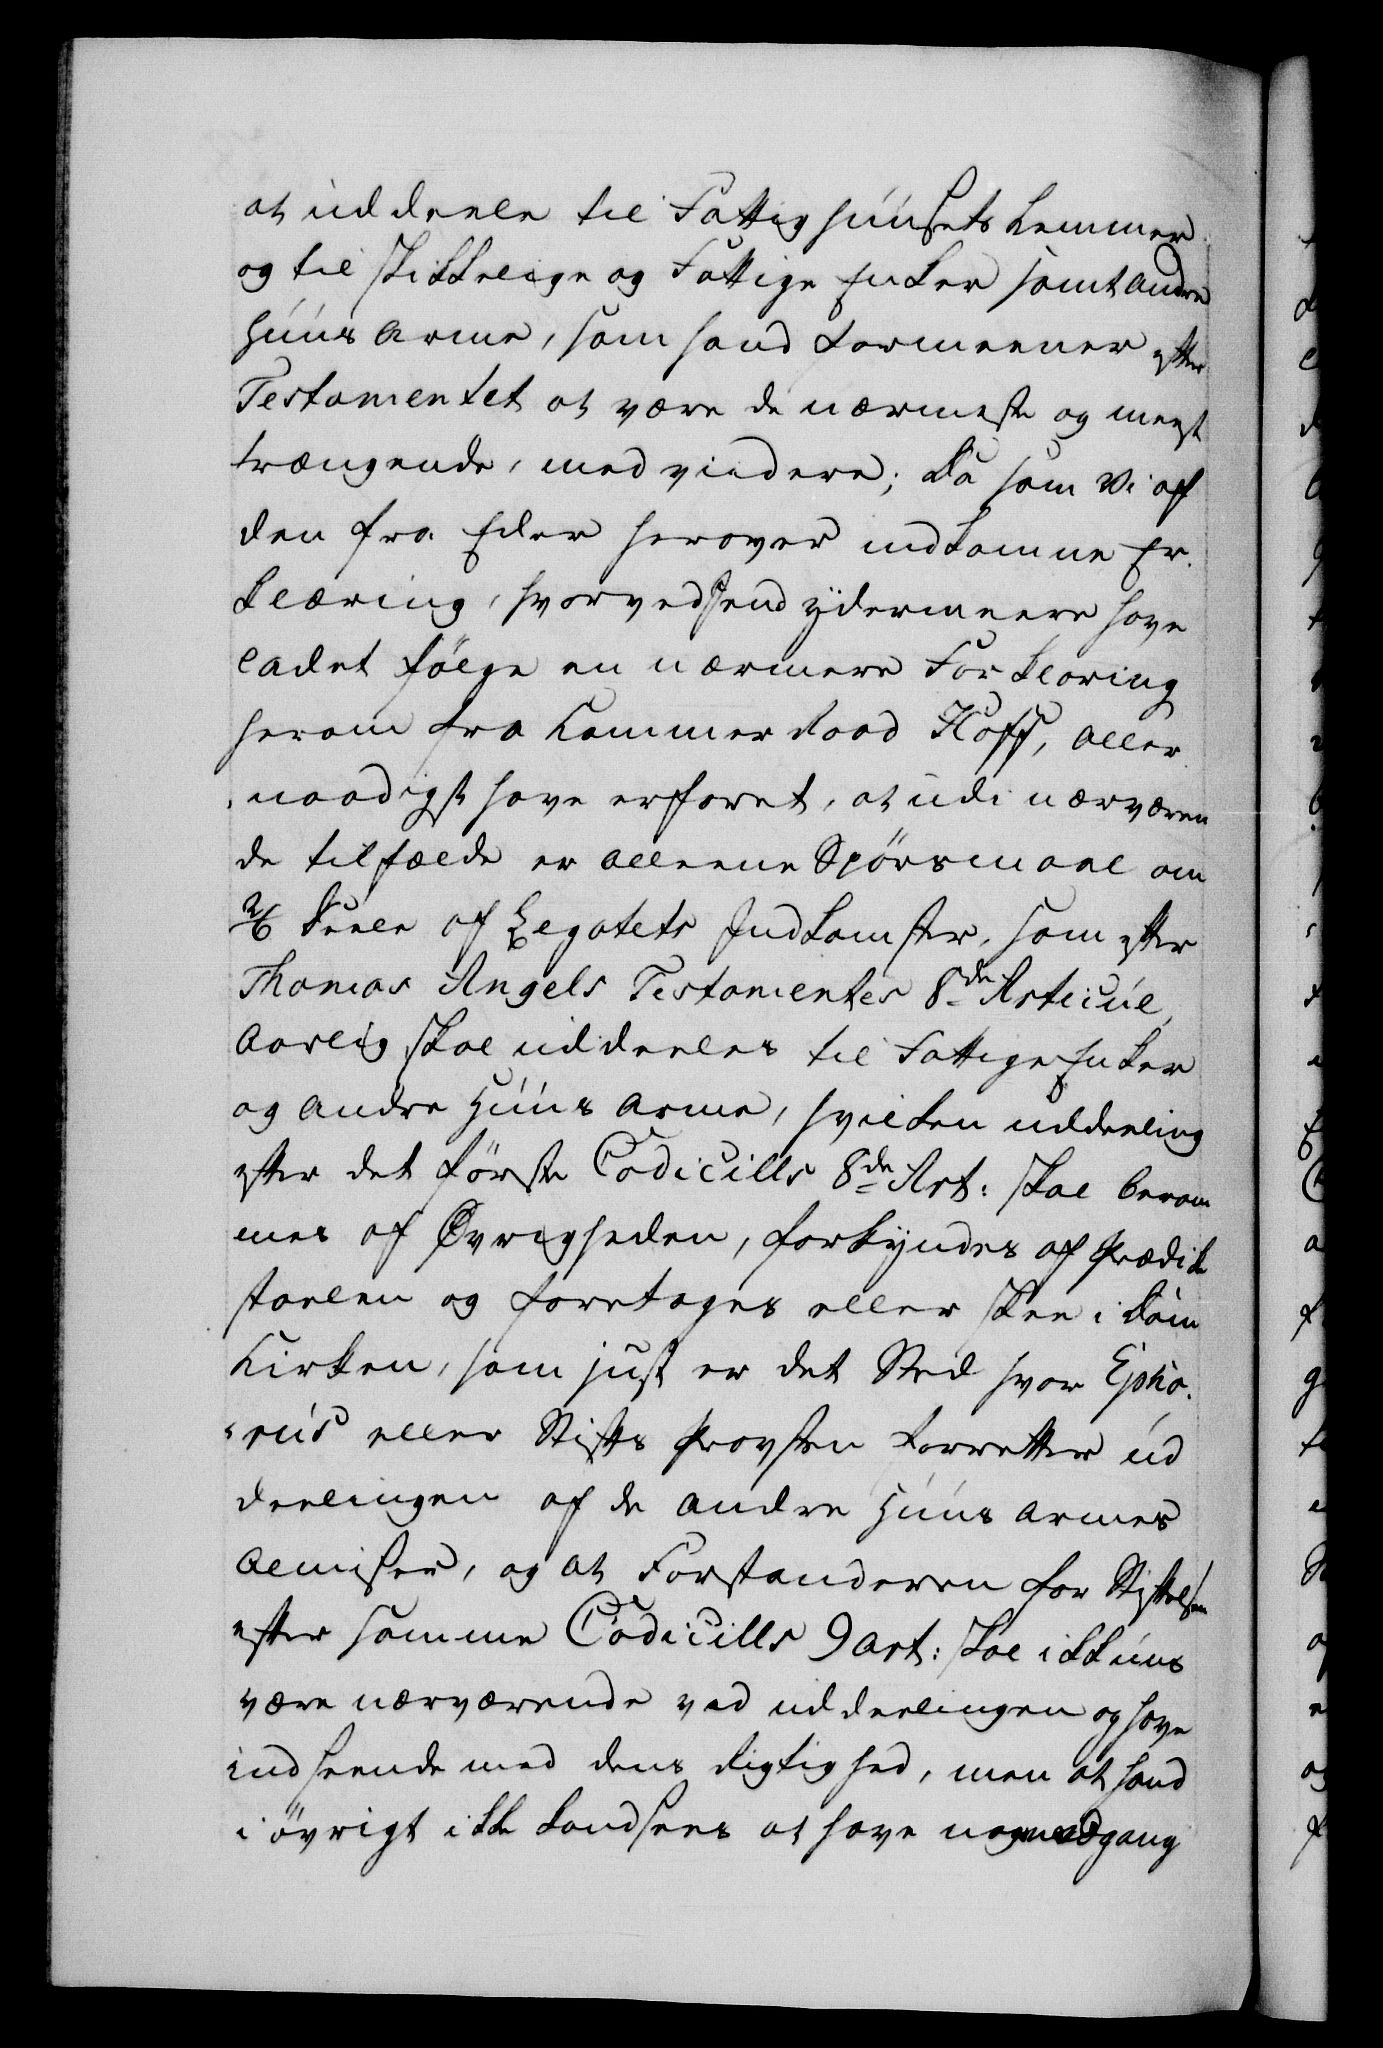 at uddeele til Fattighuusets Lemmer
og til skikkelige og Fattige Enker samt andre
Huus arme, som hand formeener efter
Testamentet at være de nærmeste og meest
trængende, med viidere; Da som Vi af
den fra Eder herover indkomne Er-
klæring, hvorved hand ÿdermeere have
ladet følge en nærmere Forklaring
herom fra Cammer Raad Hoff, aller-
naadigst have erfaret, at udi nærværen
de tilfælde er alleene Spörsmaal om
2/6 Deele af Legatets Indkomster, som efter
Thomas Angels Testamentes 8de Articul,
aarlig skal uddeeles til Fattige Enker
og andre Huus arme, hvilken uddeeling
efter det förste Codicills 8de Art: skal beram
mes af Øvrigheden, forkÿndes af Prædike
stoelen og foretages eller skee i Dom
Kirken, som just er det Sted hvor Epho-
rus eller Stifts Provsten forretter ud
deelingen af de andre Huus armes
almisser, og at Forstanderen for Stiftelsen
efter samme Codicills 9 art: skal ikkuns
være nærværende ved uddeelingen og have
indseende med dens Rigtighed, men at hand
i övrigt ikke kand sees at have nogen adgang